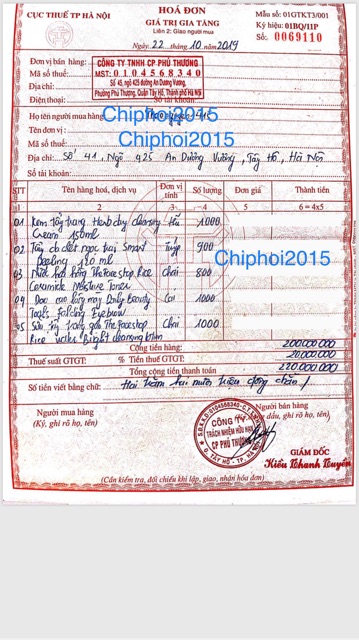 CỤC THUẾ TP HÀ NỘI
HOÁ ĐƠN
GIÁ TRỊ GIA TĂNG
Liên 2: Giao người mua
Mẫu số: 01GTKT3/001
Ký hiệu: 01BQ/11P
Số: 0069110
Ngày 22 tháng 10 năm 2019
Đơn vị bán hàng:
Mã số thuế:
Địa chỉ:
Điện thoại: Số tài khoản:
CÔNG TY-TNHH-CP PHÚ THƯƠNG
MST: 0104568340
Số 45, ngõ 425 đường An Dương Vương,
Phường Phú Thượng, Quận Tây Hồ, Thành phố Hà Nội
Họ tên người mua hàng
Chiphoi2015
Tên đơn vị:
Mã số thuế:
Chiphoi2015
Địa chỉ: Số 41, Ngõ 425 An Dương Vương, Tây Hồ, Hà Nội
Số tài khoản:
STT Tên hàng hoá, dịch vụ Đơn vị tính Số lượng Đơn giá Thành tiền
2 3 4 5 6=4x5
01 Kem tẩy trang Herb day cleansing Hũ 1000
Cream 150ml
02 Tẩy da chết ngọc trai Smart Tuýp 900
Peeling 120 ml
Chiphoi2015
03 Nước hoa hồng The face shop Rice Chai 800
Ceramide Moisture Toner
04 Dao cạo lông mày Daily Beauty Cái 1000
Tools folding Eyebrow
05 Sữa rửa The Faceshop Chai 1000
Rice water Bright cleansing lotion
Cộng tiền hàng: 200000000
Thuế suất GTGT: % Tiền thuế GTGT: 20.000.000
Tổng cộng tiền thanh toán 220.000.000
Số tiền viết bằng chữ: Hai trăm hai mươi triệu đồng chẵn /
Người mua hàng
(Ký, ghi rõ họ, tên)
Người bán hàng
CÔNG TY
TRÁCH NHIỆM HỮU HẠN
CP PHÚ THƯƠNG
GIÁM ĐỐC
Kiều Khanh Nguyên
(Cần kiểm tra, đối chiếu khi lập, giao, nhận hóa đơn)